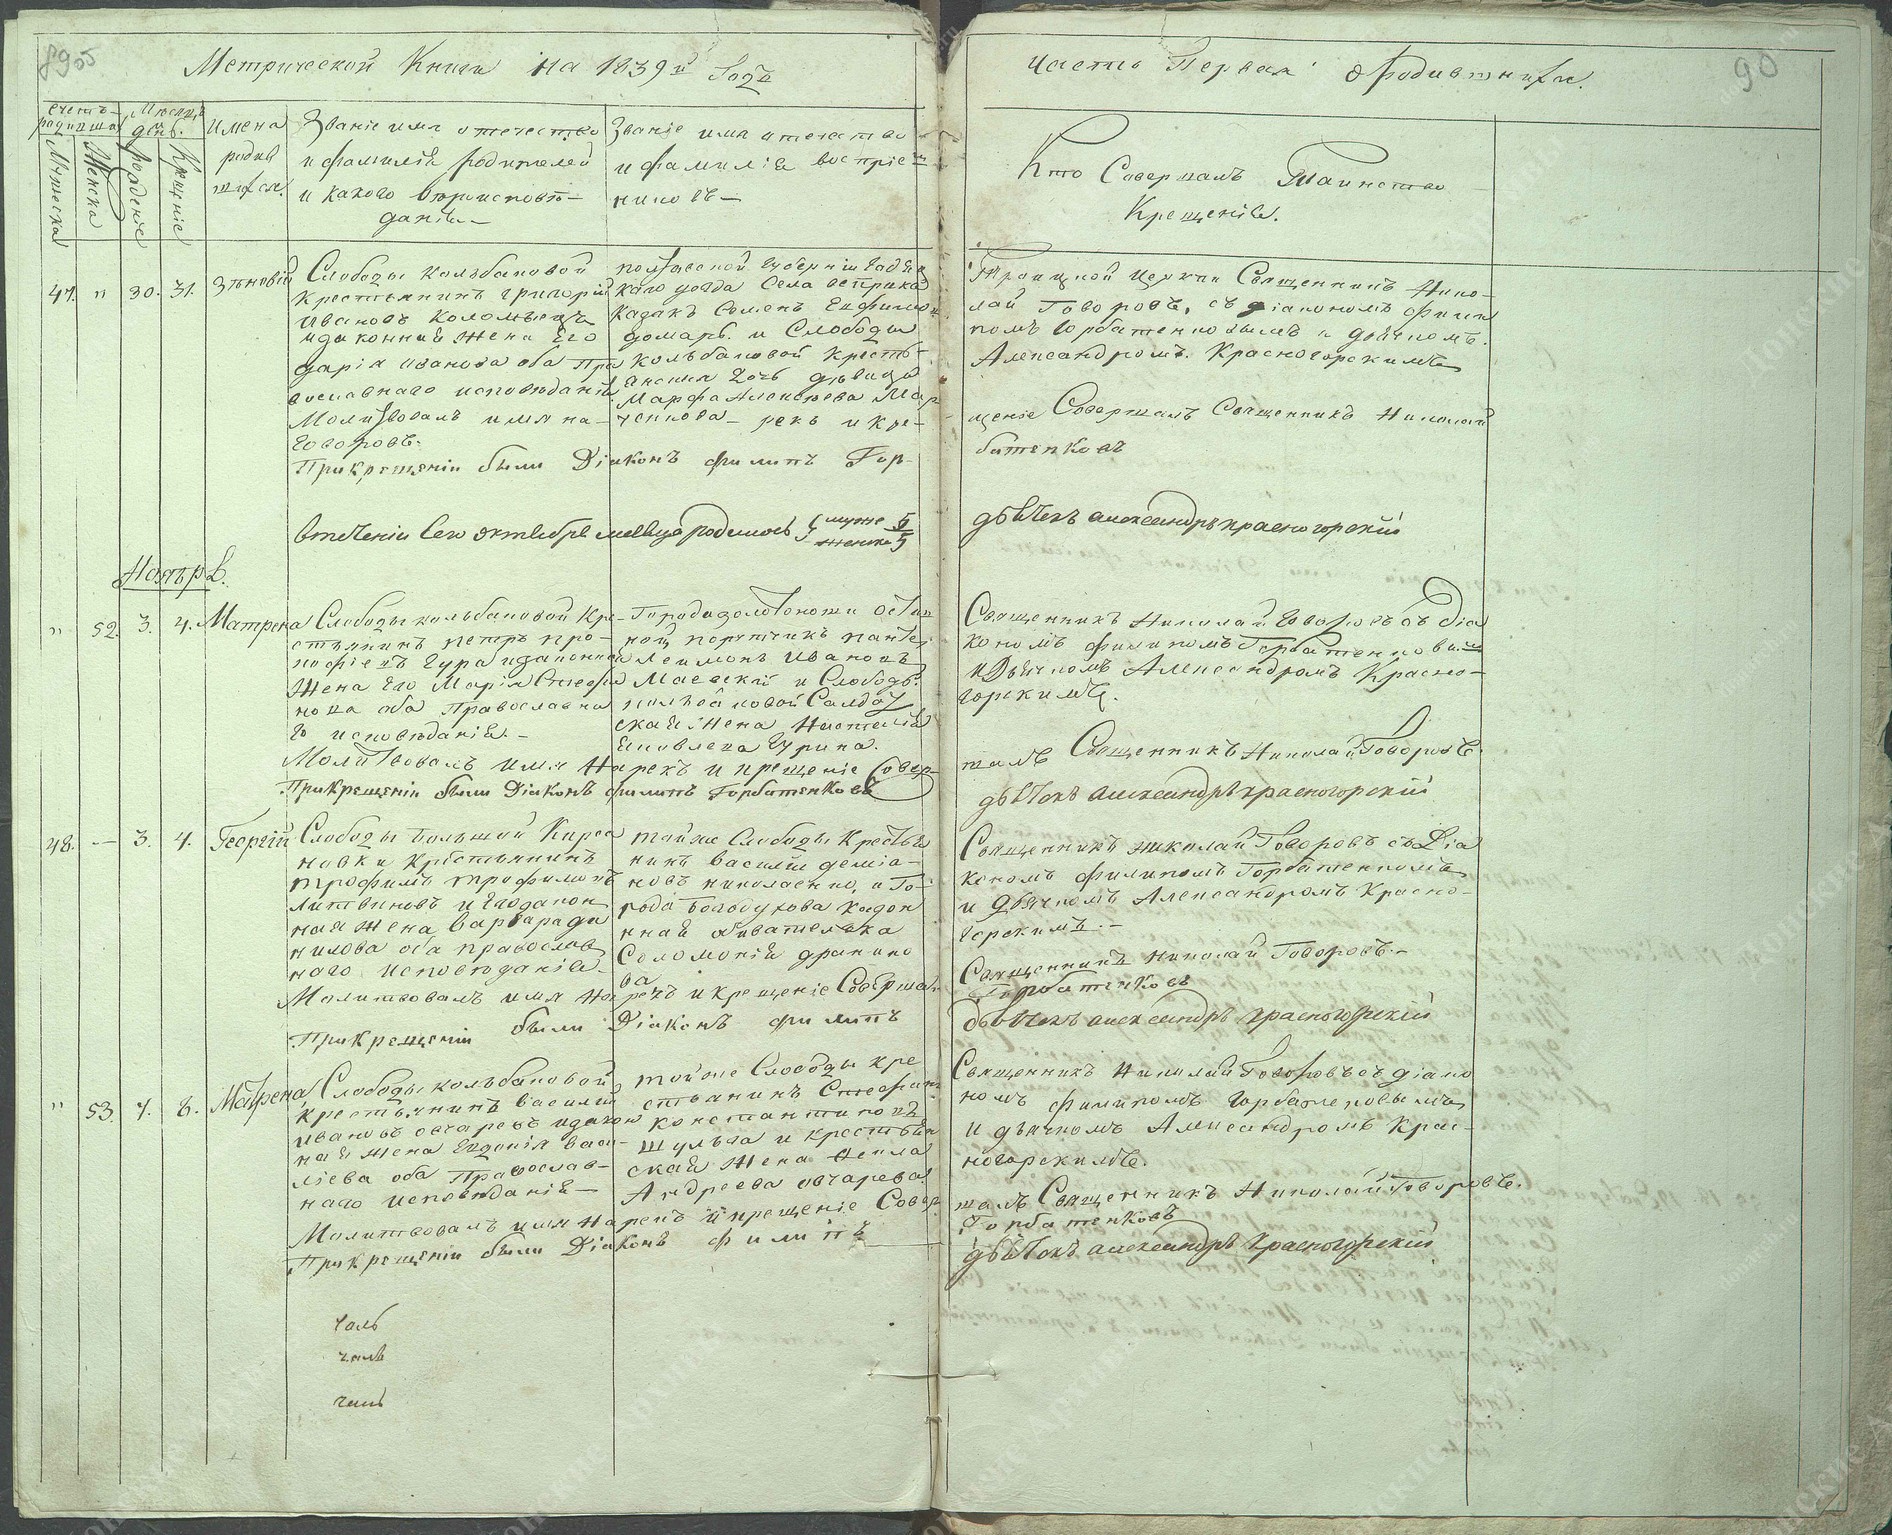 8905
Метрической Книги на 1839й Года
Часть Первая о родившихся.
90
Счетъ родивша
Мужеска
Женска
Месяцъ и день.
рожденіе
Крещеніе
Имена родив шихся.
Званіе имя отечество
и фамилія родителей
и какого вероисповѣ-
данія
Званіе имя отечество
и фамилія воспріем
никовъ
Кто Совершалъ Таинство
Крещенія.
47. " 30. 31. Зѣновій
Слободы Колъбановой
Крестьянинъ Григорій
Ивановъ Коломѣецъ
и законная Жена Его
Дарія Иванова оба Пра
вославнаго исповѣданія
Молитвовалъ имя на-
Говоровъ.
При крещеніи были Діаконъ Филипъ Гор-
Полтавской Губерніи Гадяц
каго уезда Села
Казакъ Семенъ Евфимов
и Слободы
Колъбановой Кресть-
янская дочь девица
Марфа Алексеева Мар
ченкова рекъ и кре-
Троицкой Церкви Священникъ Нико-
лай Говоровъ, съ діакономъ Филип
помъ Горбатенковымъ и дьячкомъ
Александромъ Красногорскимъ
щеніе Совершалъ Священникъ Николай
батенковъ
дьячекъ александръ красногорскій
втеченіи Сего октября месяца родилось муже 5 женска 5
Ноябрь.
" 52. 3. 4. Матрена
Слободы колъбановой Кре-
стьянинъ петръ про-
кофіевъ Гура и законная
Жена Его Марія Стефа
нова оба Православна
го исповѣданія.
Молитвовалъ имя На рекъ и крещеніе Совер-
При крещеніи были Діаконъ филипъ Горбатенковъ
Города золотоноши
поручикъ панте
леимонъ Ивановъ
Маевскій и Слободы
колъбановой Салдат
ская Жена Настасія
Яковлева Гурина.
Священникъ Николай Говоровъ съ Діа
кономъ филипомъ Горбатенковымъ
и Дьячкомъ Александромъ Красно-
горскимъ.
шалъ Священникъ Николай Говоровъ.
дьячекъ александръ красногорскій
48. — 3. 4. Георгій
Слободы большой Кирса
новки Крестьянинъ
Трофимъ трофимовъ
литвиновъ и Его закон
ная Жена Варвара да
нилова оба православ
наго исповѣданія
Молитвовалъ имя На рекъ и крещеніе Совершалъ
При крещеніи были Діаконъ филипъ
тойже Слободы Крестья
нинъ василій деміа-
новъ николаенко, и Го-
рода Богодухова
Соломонія
ва
Священникъ николай Говоровъ съ Діа
кономъ филипомъ Горбатенкомъ
и дьячкомъ Александромъ Красно-
горскимъ.
Священникъ николай Говоровъ.
Горбатенковъ
дьячекъ александръ красногорскій
" 53. 7. 8. Матрена
Слободы колъбановой
крестьянинъ василій
Ивановъ овчаревъ и закон
ная жена Евдокія васи-
ліева оба Православ-
наго исповѣданія
Молитвовалъ имя На рекъ и крещеніе Совер
При крещеніи были Діаконъ филипъ
тойже Слободы кре
стьянинъ Стефан
константиновъ
шульга и крестьян
ская жена
Андреева овчарева
Священникъ Николай Говоровъ съ діако
номъ филипомъ горбатенковымъ
и дьячкомъ Александромъ Крас-
ногорскимъ.
шалъ Священникъ Николай Говоровъ.
Горбатенковъ
дьячекъ александръ красногорскій